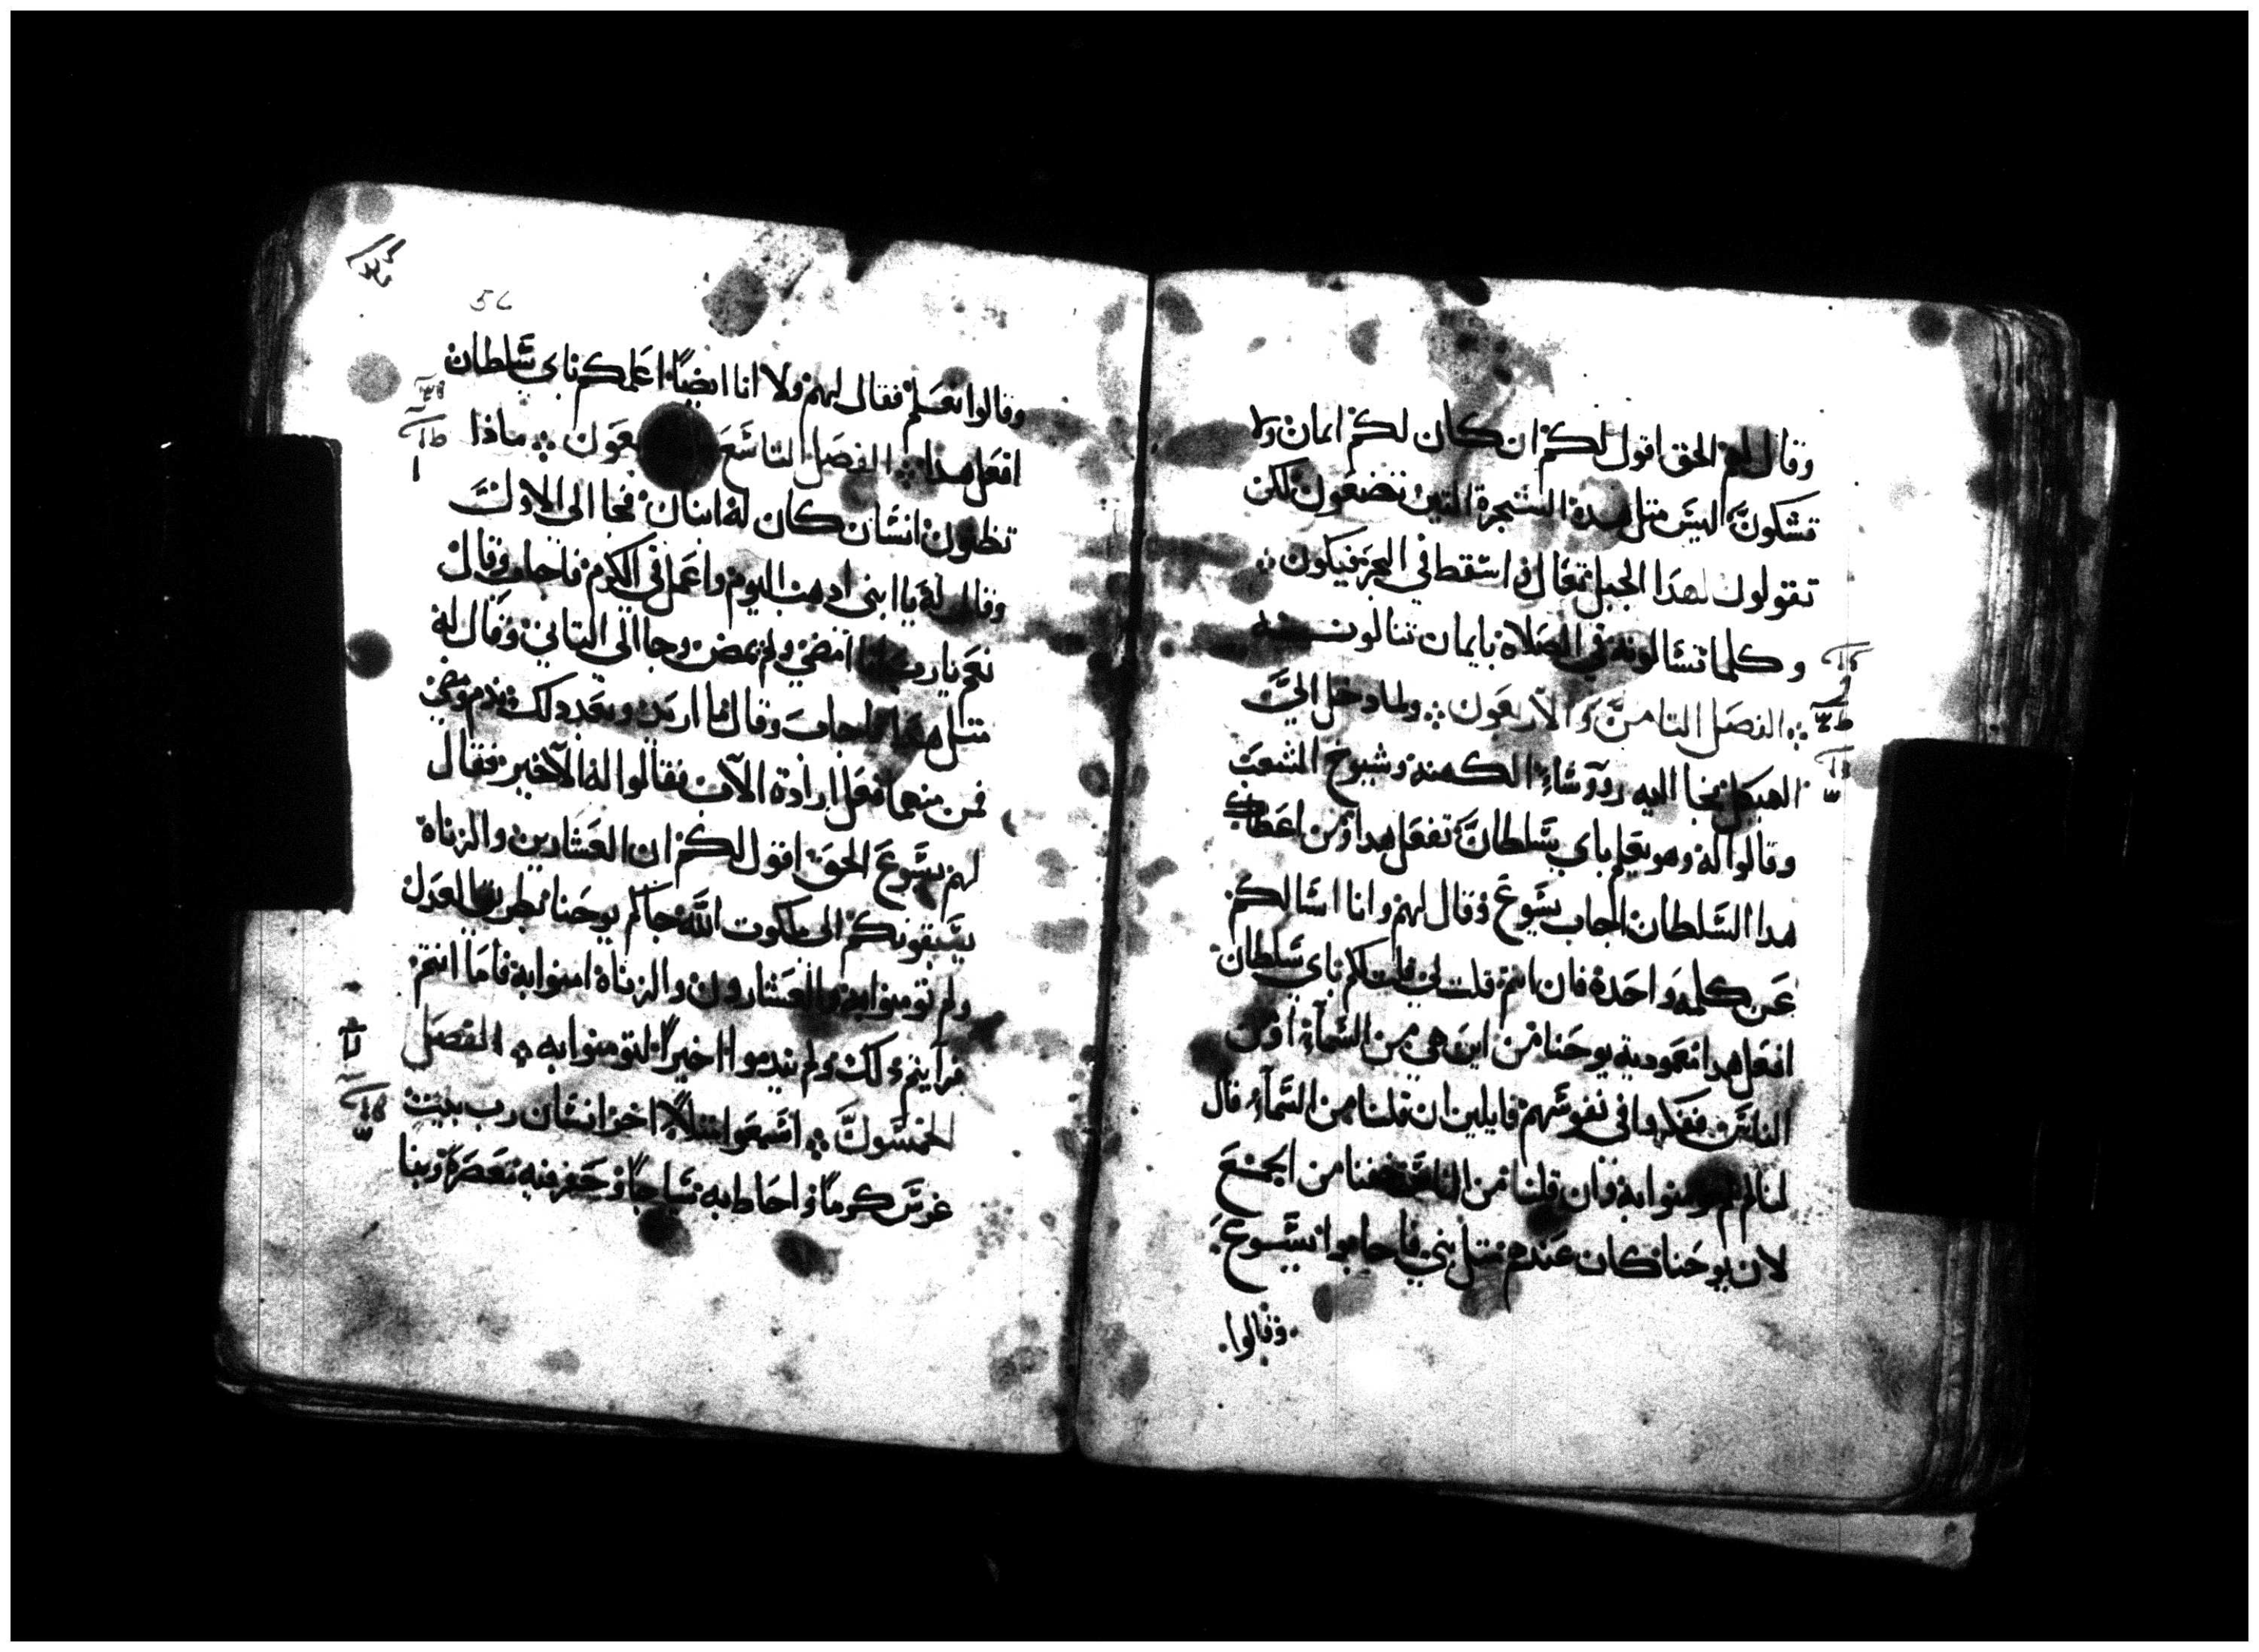 وقال لهم الحق اقول لكم ان كان لكم ايمان ولا
تشكون ليس مثل هذه الشجرة التين تصنعون لكن
تقولون لهذا الجبل تعال واسقط في البحر فيكون
وكلما تسالونه في الصلاه بايمان تنالونه
الفصل الثامن والاربعون ولما دخل الى
الهيكل فجا اليه روؤساء الكهنه وشيوخ الشعب
وقالوا له وهو يعلم باي سلطان تفعل هدا ومن اعطاك
هدا السلطان اجاب يسوع وقال لهم وانا اسالكم
عن كلمه واحدة فان انتم قلتم لي قلت لكم باي سلطان
افعل هدا معمودية يوحنا من اين هي من السمآء او من
الناس ففكروا في نفوسهم قايلين ان قلنا من السمآء قال
لنا لم لم تومنوا به وان قلنا من الناس خفنا من الجمع
لان يوحنا كان عندهم مثل نبي فاجابوا يسوع
وقالوا
56
وقالوا نعلم فقال لهم ولا انا ايضًا اعلمكم باي سلطان
افعل هدا الفصل التاسع عون ماذا
تظنون انسان كان له ابنان فجا الى الاول
وقال له يا ابني ادهب اليوم واعمل في الكرم فاجاب وقال
نعم يارب انا امضي ولم يمض وجا الى الثاني وقال له
مثل هدا فاجاب وقال ما اريد وبعد دلك ندم ومضى
فمن منهما فعل ارادة الاب فقالوا له الاخير فقال
لهم يسوع الحق اقول لكم ان العشارين والزناة
يسبقونكم الى ملكوت الله جاكم يوحنا بطريق العدل
ولم تومنوا به والعشارون والزناة امنوا به فاما انتم
فرايتم دلك ولم تندموا اخيرًا لتومنوا به الفصل
الخمسون اسمعوا مثلًا اخر انسان رب بيت
غرس كرمًا واحاط به سياجًا وحفر فيه معصرة وبنا